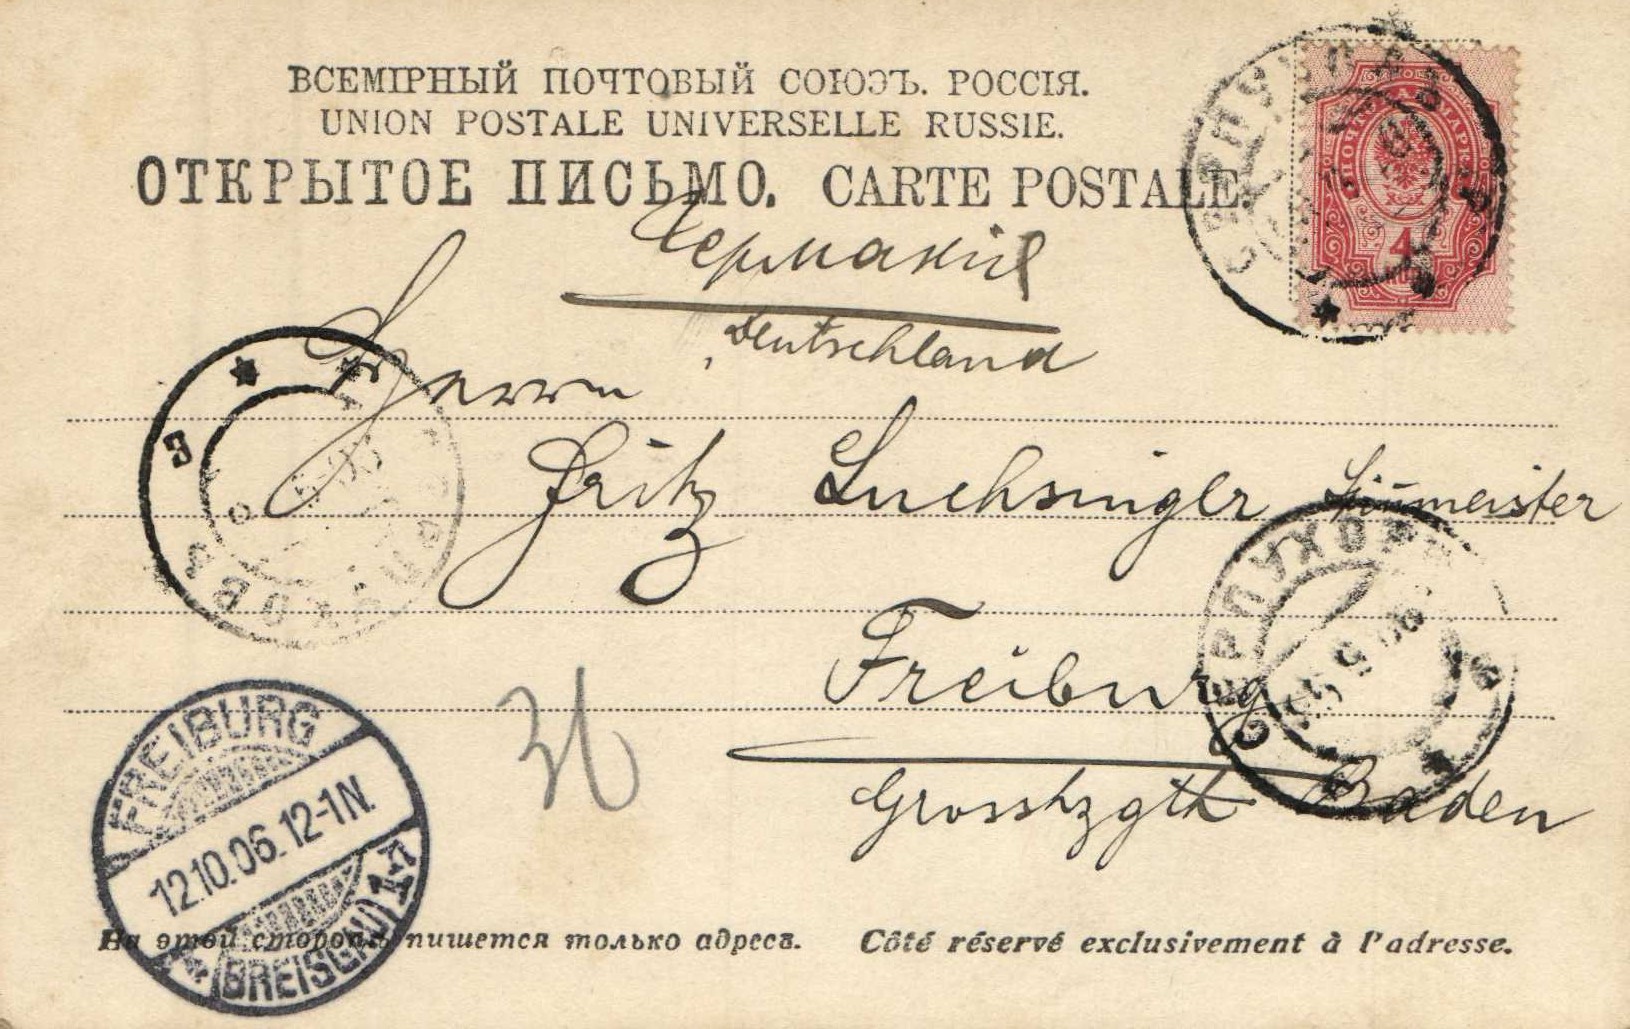 ВСЕМІРНЫЙ ПОЧТОВЫЙ СОЮЗЪ. РОССІЯ.
UNION POSTALE UNIVERSELLE RUSSIE.
ОТКРЫТОЕ ПИСЬМО. CARTE POSTALE.
ПОЧТОВАЯ МАРКА
4
СЕРПУХОВЪ
Германія
Deutschland
Herrn
Fritz Luchsinger
СЕРПУХОВЪ
Freiburg
Grosshzgth Baden
36
FREIBURG
12.10.06.12-1N.
(BREISGAU) 1A
На этой сторонѣ пишется только адресъ. Côté réservé exclusivement à l'adresse.